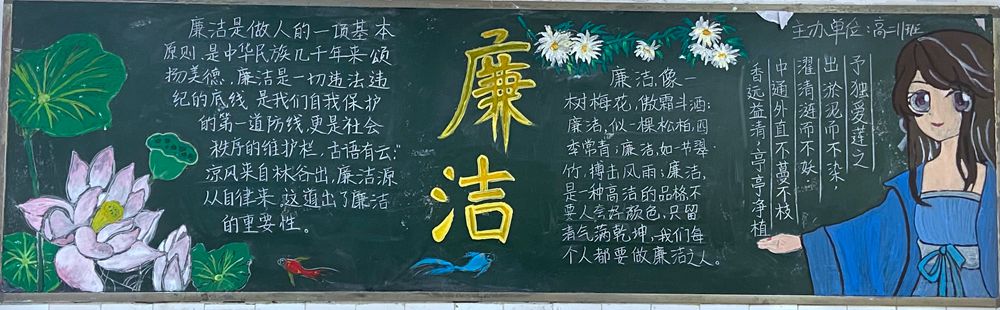 廉洁是做人的一项基本
原则,是中华民族几千年来颂
扬美德,廉洁是一切违法违
纪的底线,是我们自我保护
的第一道防线,更是社会
秩序的维护栏,古语有云:“
凉风来自林谷出,廉洁源
从自律来,这道出了廉洁
的重要性。
廉
洁
廉洁,像一
树梅花,傲霜斗洒;
廉洁,似一棵松柏,四
季常青;廉洁,如一节翠
竹,搏击风雨;廉洁,
是一种高洁的品格不
要人夸好颜色,只留
清气满乾坤,我们每
个人都要做廉洁之人。
主办单位:高二11班
予独爱莲之
出淤泥而不染,
濯清涟而不妖
中通外直不蔓不枝
香远益清,亭亭净植